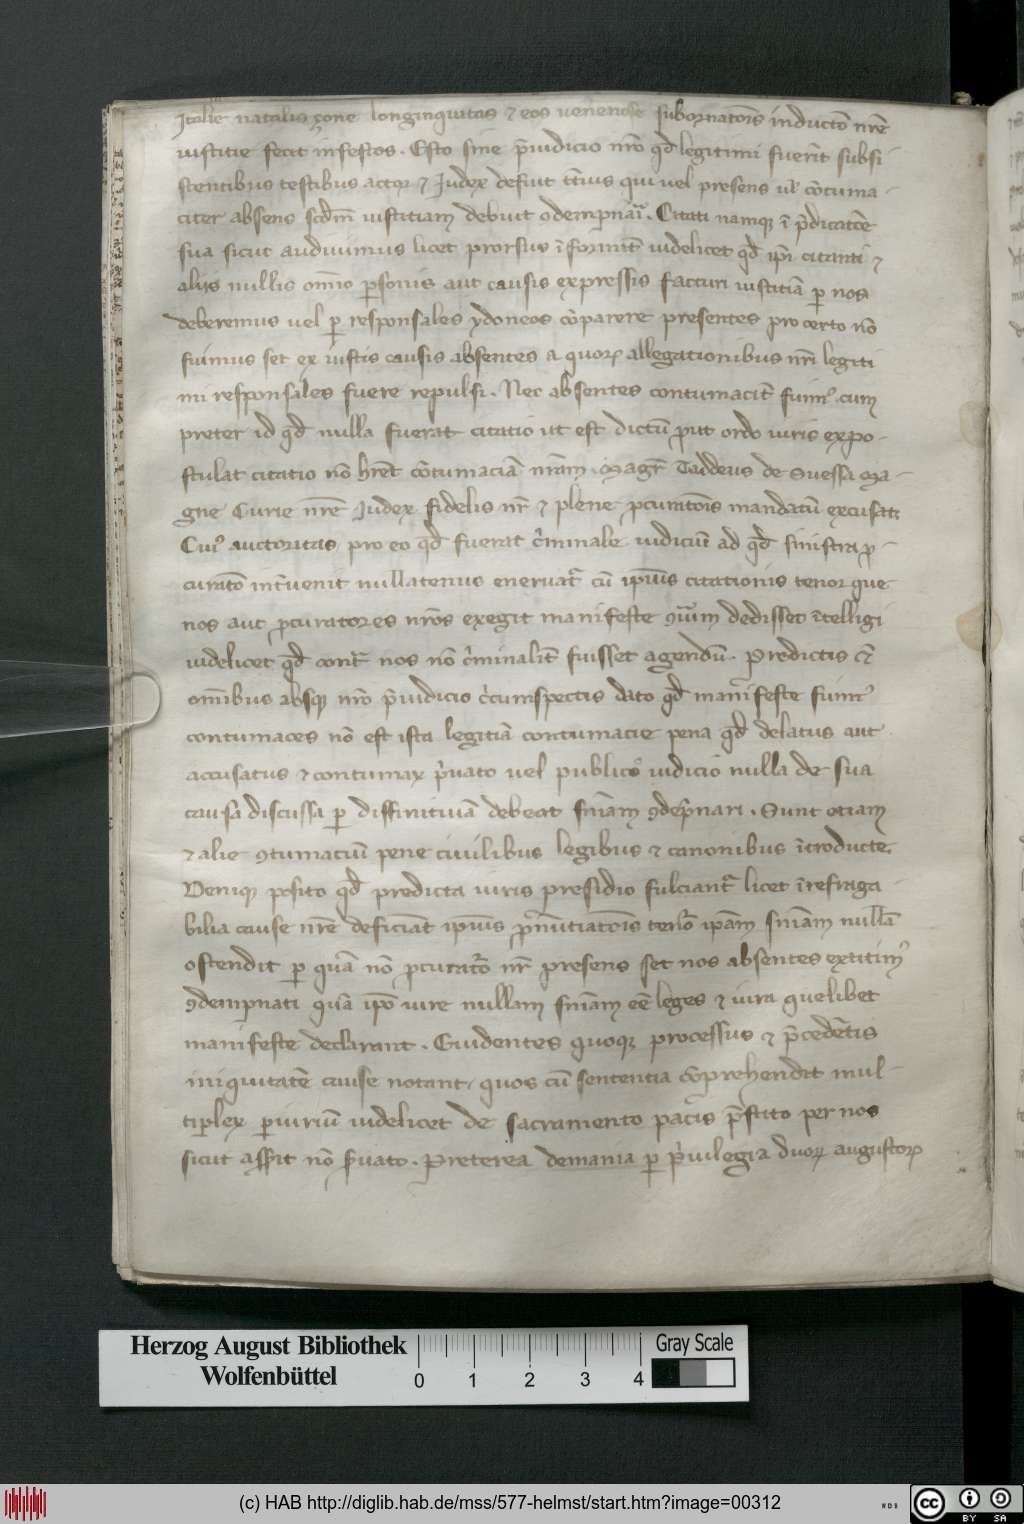 Italie natalis ꝯone longinquitas ⁊ eos venenose subornatoīs inductō nr̄e
iustitie fecit infestos . Esto sine p̄iudicio nr̄o qd̄ legitimi fuer̄it subsi-
stentibus testibus actor ⁊ Iudex defuit t̄tius qui vel presens ul̓ cōtuma-
citer absens scd̄m iustitiam debuit ꝯdempnari . Citati namqꝫ ī p̄dicatōe
sua sicut audiuimus licet prorsus īformit̄ uidelicet qd̄ ip̄i citanti ⁊
aliis nullis om̄īo p̱sonis aut causis expressis facturi iustitiā p̱ nos
deberemus uel p̱ responsales ydoneos cōparere presentes pro certo nō
fuimus set ex iustis causis absentes a quoꝝ allegationibus nr̄i legiti
mi responsales fuere repulsi . Nec absentes contumacit̄ fuimꝰ cum
preter id qd̄ nulla fuerat citatio ut est dictū ꝓut ordo iuris expo-
stulat citatio nō hr̄et cōtumaciā nr̄am . Magr̄ Taddeus de Suessa Ma-
gne Curie nr̄e Iudex fidelis nr̄ ⁊ plene ꝓcuratoīs mandatū excusat.
Cuiꝰ auctoritas pro eo qd̄ fuerat c̄minale iudiciū ad qd̄ sinistra ꝓ-
curatō int̄uenit nullatenus eneruat̄ cū ipīus citationis tenor que
nos aut ꝓcuratores nr̄os exegit manifeste dedisset ītelligi
uidelicet qd̄ cont̄ nos nō c̄minalit̄ fuisset agendū . Predictis
om̄ibus absqꝫ nr̄o p̄iudicio c̄cumspectis dato qd̄ manifeste fuimꝰ
contumaces nō est ista legitīa contumacie pena qd̄ delatus aut
accusatus ⁊ contumax p̓uato uel publico iudicio nulla de sua
causa discussa p̱ diffinitiuā debeat sn̄iam ꝯdēpnari . Sunt etiam
⁊ alie ꝯtumaciū pene ciuilibus legibus ⁊ canonibus ītroducte.
Deniqꝫ posito qd̄ predicta iuris presidio fulciant̄ licet īrefraga-
bilia cause nr̄e deficiāt ipīus ꝓnūtiatoīs tenō ip̄am sn̄iam nullā
ostendit p̱ quā nō ꝓcuratō nr̄ presens set nos absentes extitimꝰ
ꝯdempnati quā ip̄o iure nullam sn̄iam ēē leges ⁊ iura quelibet
manifeste declarant . Euidentes quoqꝫ processus ⁊ p̄cedētis
iniquitatē cause notant quos cū sententia cōprehendit mul-
tiplex p̱iuriū uidelicet de sacramento pacis p̄stito per nos
sicut ass̄it nō s̱uato . Preterea demania p̱ p̓uilegia duoꝝ augustoꝝ
Herzog August Bibliothek
Wolfenbüttel
0 1 2 3 4
Gray Scale
(c) HAB http://diglib.hab.de/mss/577-helmst/start.htm?image=00312
WDB
cc
BY SA